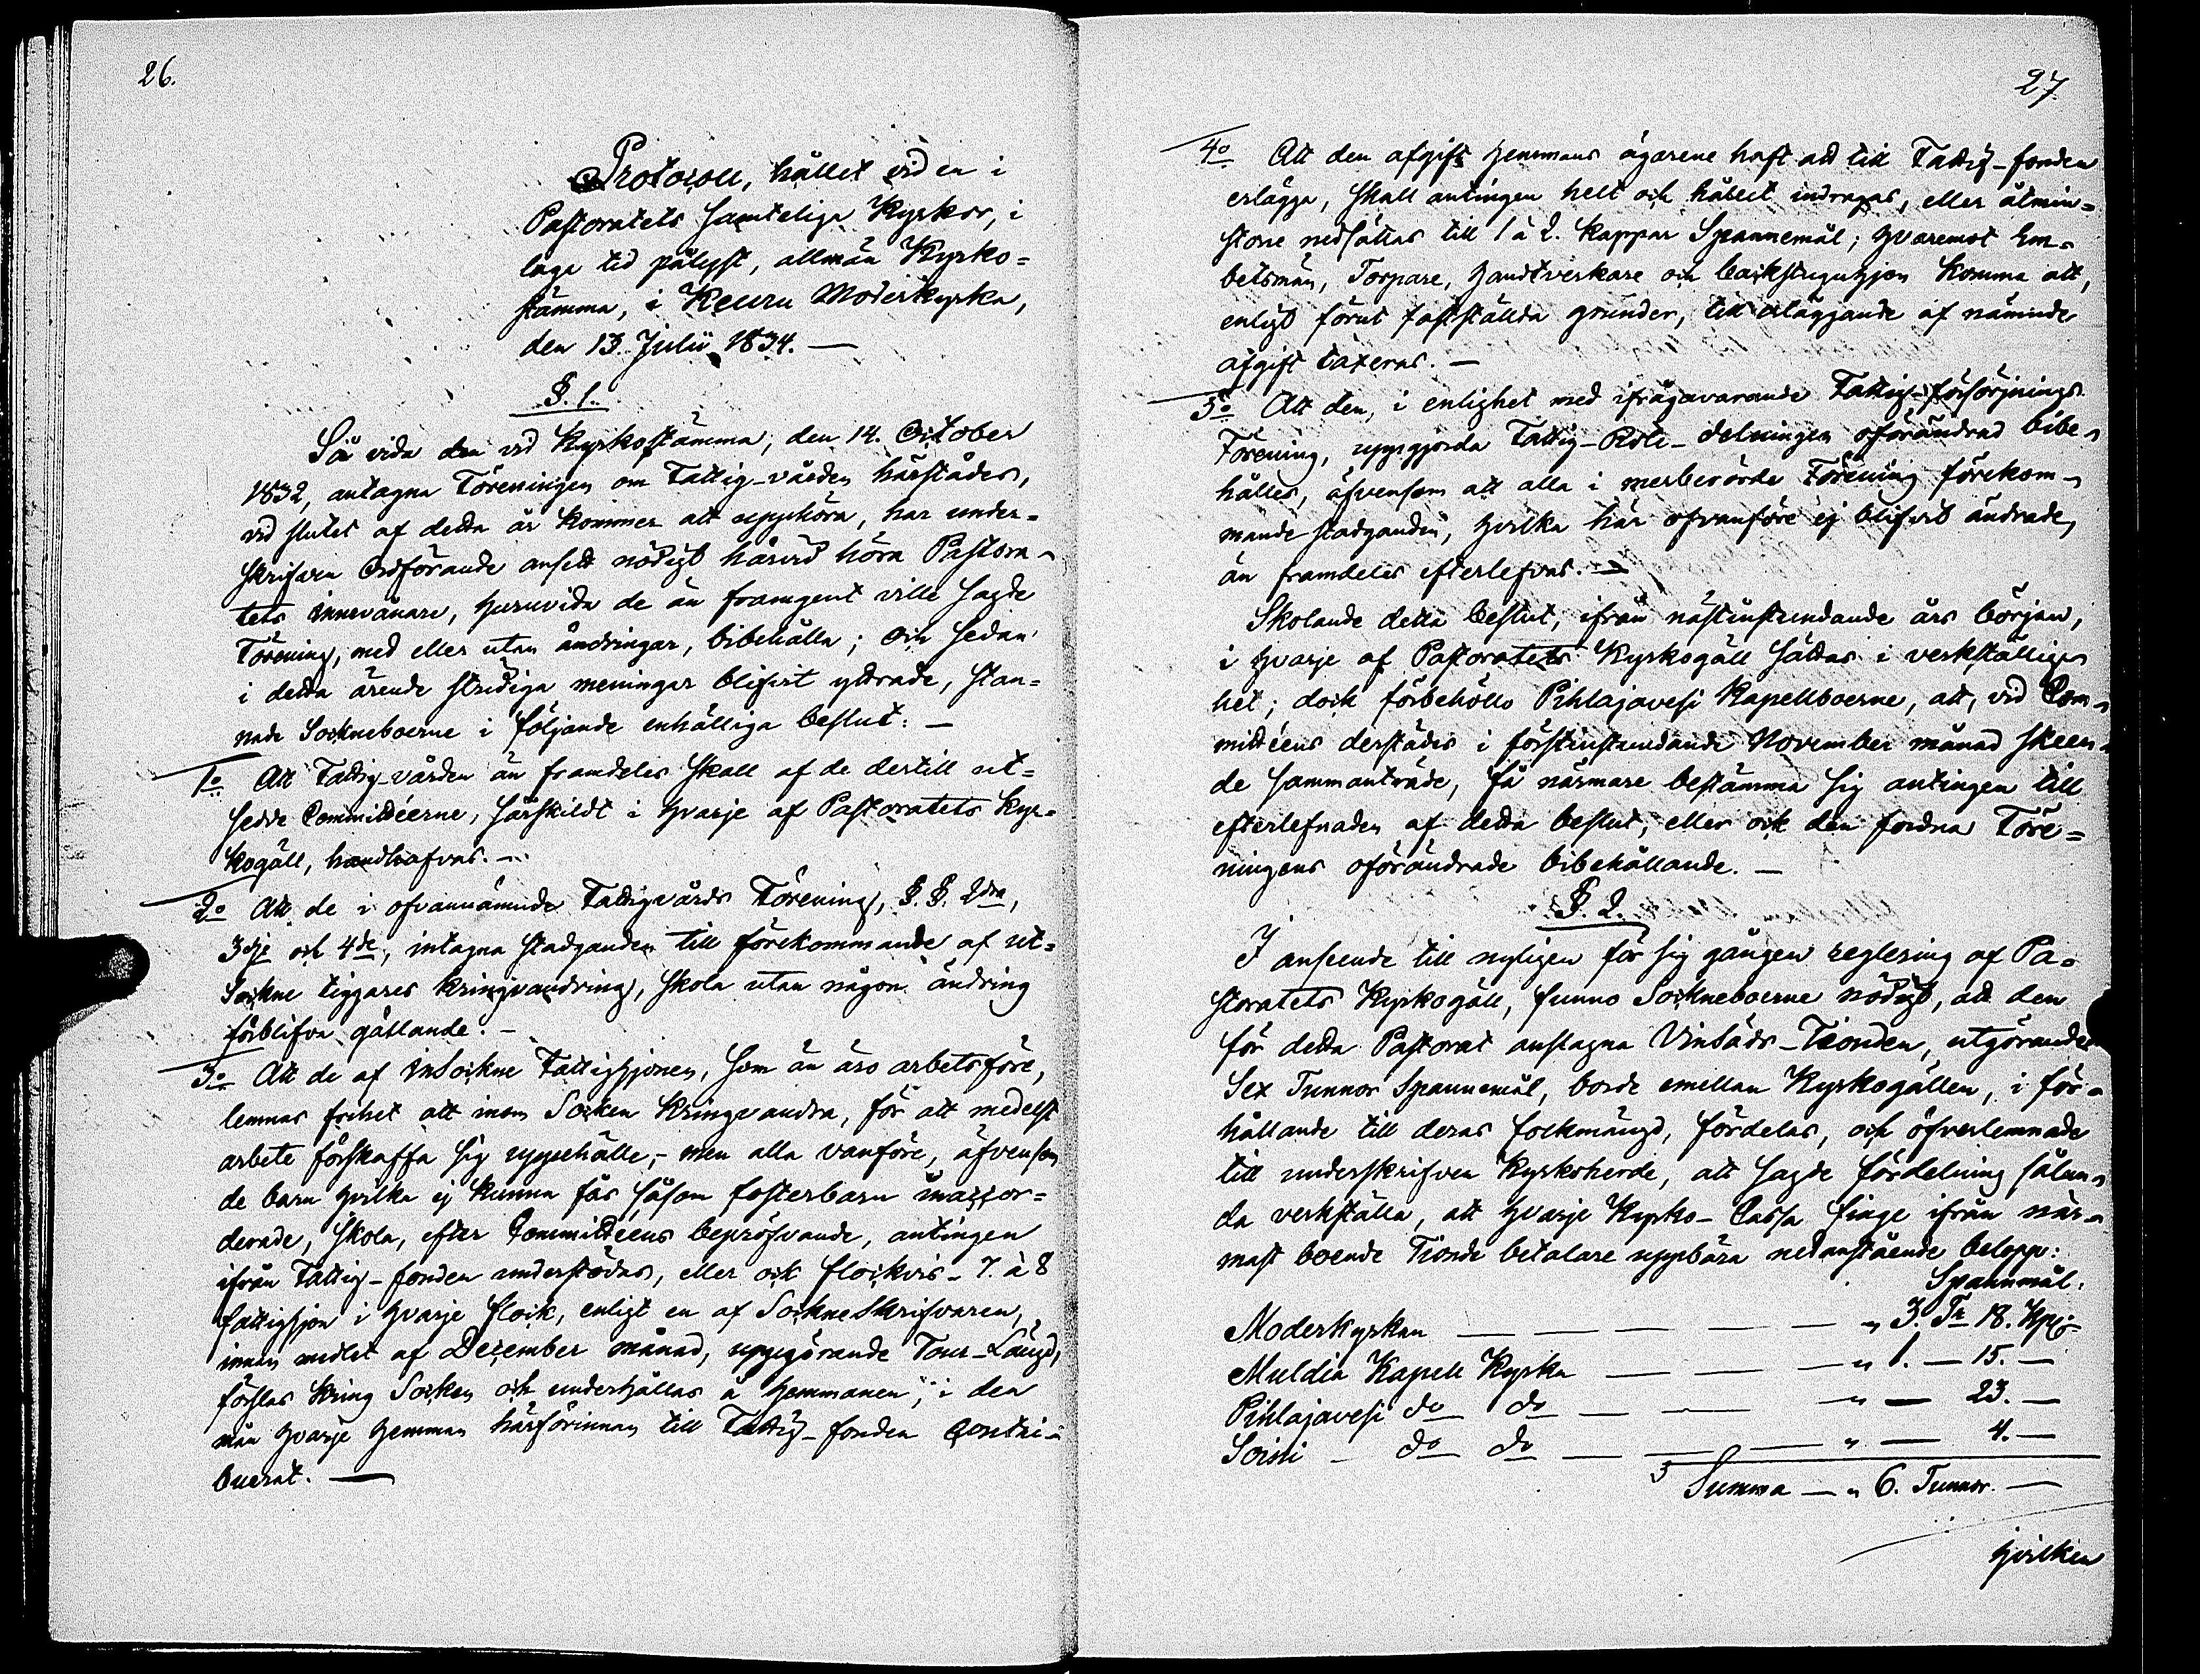 26.
Protocoll, hållet vid en i
Pastoratets samteliga Kyrkor, i
laga tid pålyst, allmän Kyrko=
stämma, i Keuru Moderkyrka,
den 13. Julii 1834. —
§. 1.
Så vida den vid Kyrkostämma, den 14. October
1832, antagna Föreningen om Fattig-vården härstädes,
vid slutet af detta år kommer att upphöra, har under=
skrifven Ordförande ansett nödigt härvid höra Pastora=
tets innevånare, huruvida de än framgent ville sagde
Förening, med eller utan ändringar, bibehålla; och sedan
i detta ärende stridiga meningar blifvit yttrade, stan=
nade Sockneboerne i följande enhälliga beslut: —
1o Att Fattig-vården än framdeles skall af de dertill ut=
sedde Committéerne, särskildt i hvarje af Pastoratets Kyr=
kogäll, handhafvas. —
2o Att de i ofvannämnde Fattigvårds Förening, §. §. 2dra,
3dje och 4de, intagna stadganden till förekommande af ut=
Sockne tiggares kringvandring, skola utan någon ändring
förblifva gällande. —
3o Att de af inSockne Fattighjonen, som än äro arbetsföre,
lemnas frihet att inom Socken kringvandra, för att medelst
arbete förskaffa sig uppehälle, - men alla vanföre, äfvensom
de barn hvilka ej kunna fås såsom fosterbarn inaccor=
derade, skola, efter Committéens bepröfvande, antingen
ifrån Fattig-fonden understödas, eller ock flockvis - 7. à 8
fattighjon i hvarje flock, enligt en af SockneSkrifvaren,
innan medlet af December månad, uppgörande Tour-Längd,
förslas kring Socken och underhållas å hemmanen, i den
mån hvarje hemman härförinnan till Fattig-fonden contri=
buerat. —
27.
4o Att den afgift hemmans ägarene haft att till Fattig-fonden
erlägga, skall antingen helt och hållet indragas, eller åtmin=
stone nedsättas till 1 à 2. Kappar Spannemål; hvaremot Em=
betsmän, Torpare, Handtverkare och backstuguhjon komma att,
enligt förut fastställda grunder, till erläggande af nämnde
afgift taxeras. —
5o Att den, i enlighet med ifrågavarande Fattig-försörjnings
Förening, uppgjorda Fattig-Rote-delningen oförändrad bibe=
hålles, äfvensom att alla i merberörde Förening förekom=
mande stadganden, hvilka här ofvanföre ej blifvit ändrade,
än framdeles efterlefvas. —
Skolande detta beslut, ifrån nästinstundande års början,
i hvarje af Pastoratets Kyrkogäll sättas i verkställig=
het; dock förbehöllo Pihlajavesi Kapellboerne, att, vid Com=
mittéens derstädes i förstinstundande November månad skeen=
de sammanträde, få närmare bestämma sig antingen till
efterlefnaden af detta beslut, eller ock den fordna Före=
ningens oförändrade bibehållande. —
§. 2.
I anseende till nyligen för sig gången reglering af Pa=
storatets Kyrkogäll, funno Sockneboerne nödigt, att den
för detta Pastorat anslagna Vinsäds-Tionden, utgörande
Sex Tunnor Spannemål, borde emellan Kyrkogällen, i för=
hållande till deras folkmängd, fördelas, och öfverlemnade
till underskrifven Kyrkoherde, att sagde fördelning sålun=
da verkställa, att hvarje Kyrko-Cassa finge ifrån när=
mast boende Tionde betalare uppbära nedanstående belopp:
Spannmål.
Moderkyrkan — — — — — " 3. Tr 18. Kpr
Muldia Kapell Kyrka — — — — " 1. — 15. —
Pihlajavesi do do — — — " — 23. —
Soini — do do — — — " — 4. —
Summa — " 6. Tunnor. —
hvilken